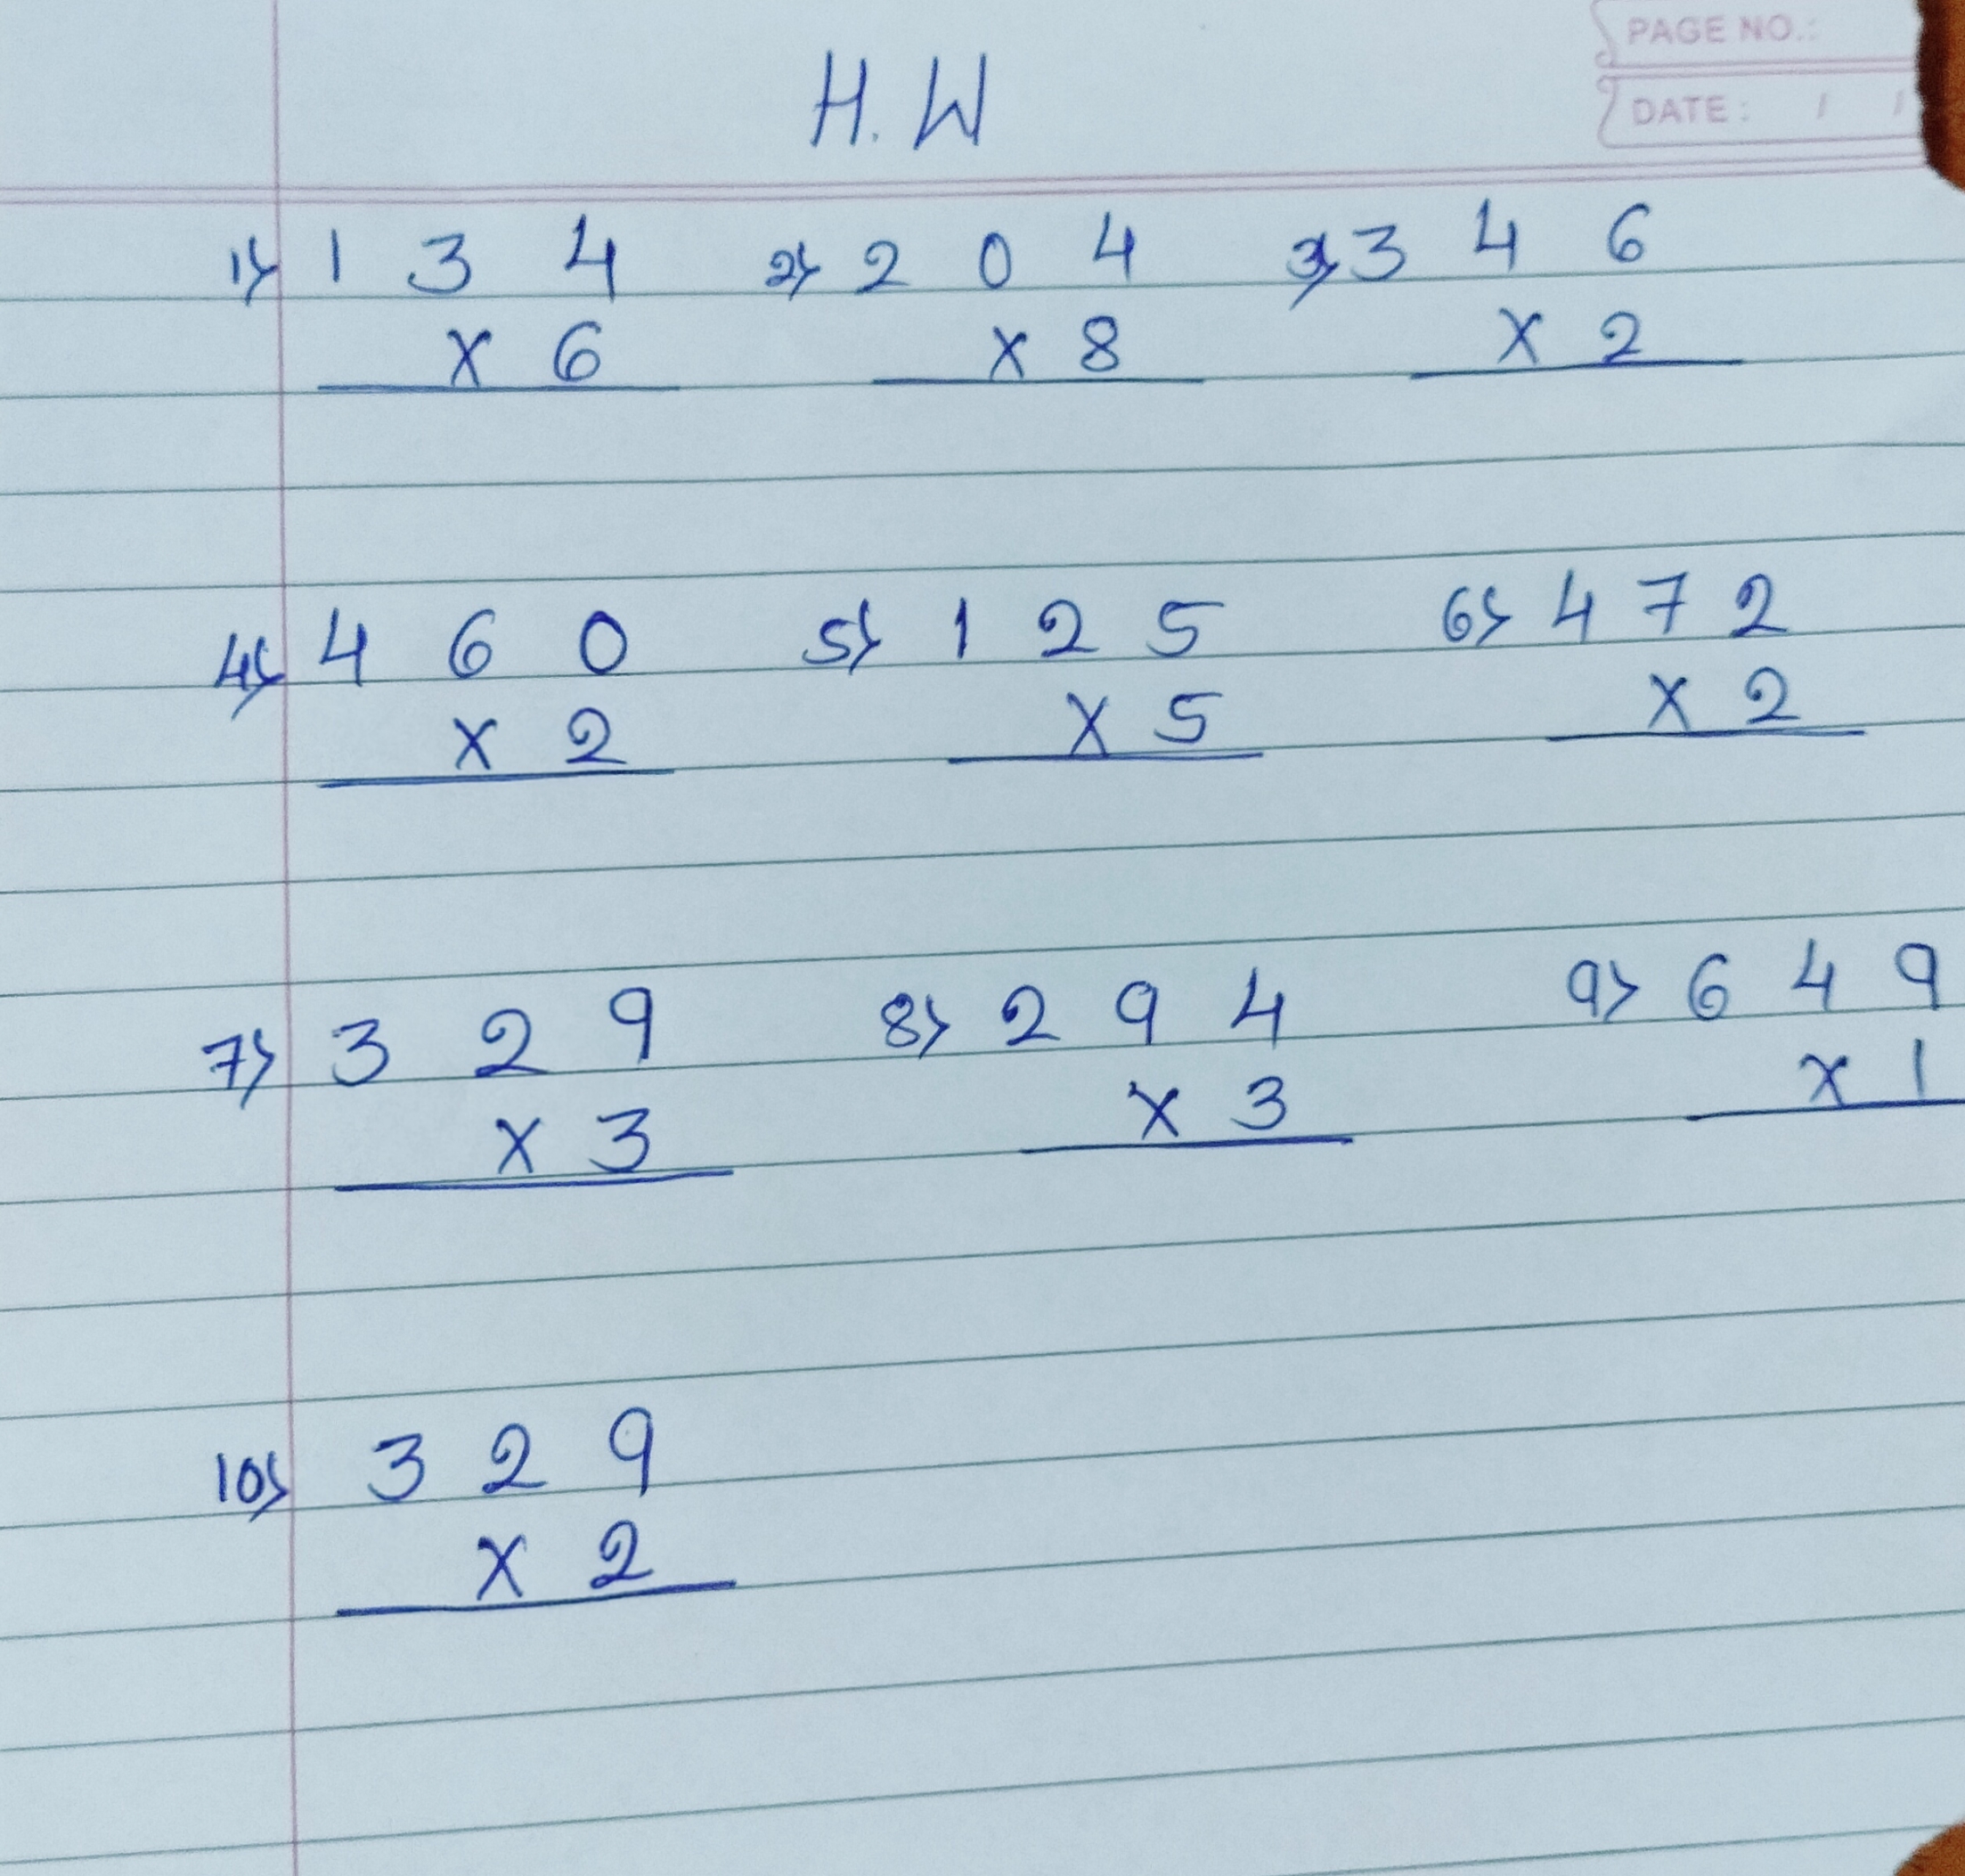 PAGE NO.:
DATE: / /
H.W
1) 1 3 4 2) 2 0 4 3) 3 4 6
x 6 x 8 x 2
4) 4 6 0 5) 1 2 5 6) 4 7 2
x 2 x 5 x 2
7) 3 2 9 8) 2 9 4 9) 6 4 9
x 3 x 3 x 1
10) 3 2 9
x 2